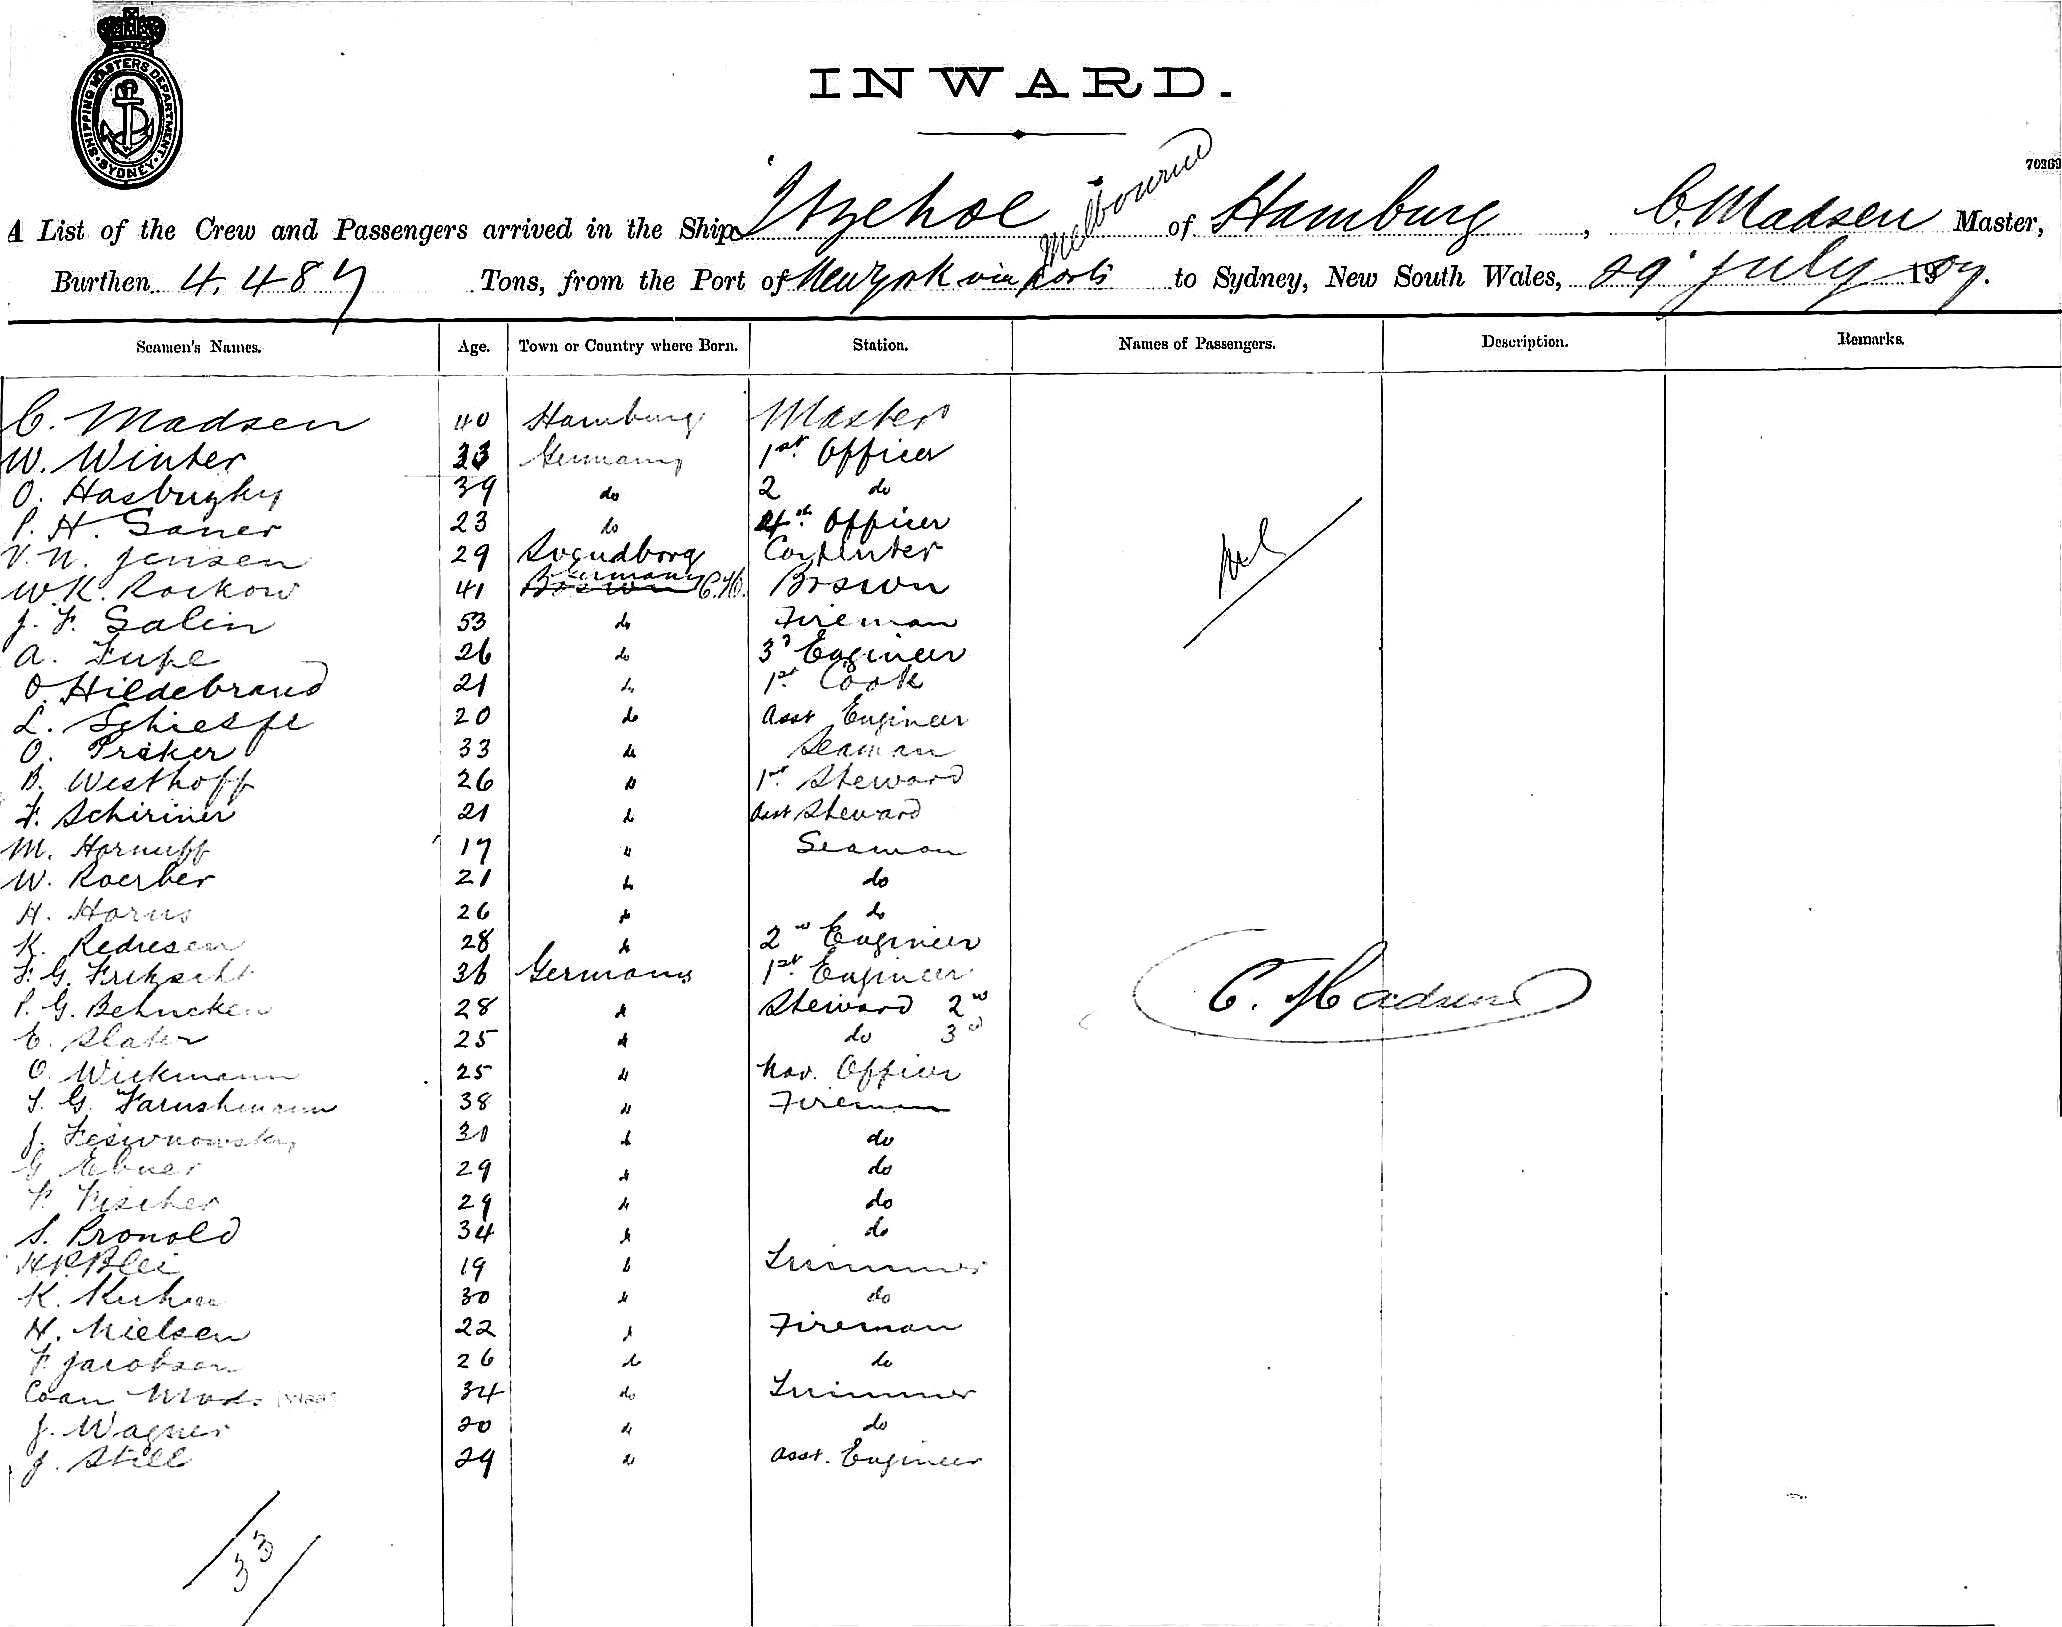 SHIPPING MASTERS DEPARTMENT. SYDNEY.
INWARD.
70369
A List of the Crew and Passengers arrived in the Ship Itzehoe of Hamburg, C. Madsen Master,
Melbourne
Burthen 4.487 Tons, from the Port of New York via ports to Sydney, New South Wales, 29 July 1909.
Seamen's Names. Age. Town or Country where Born. Station. Names of Passengers. Description. Remarks.
C. Madsen 40 Hamburg Master
W. Winter 33 Germany 1st. Officer
O. 39 do 2 do
P. H. Saner 23 do 4th. Officer
V. N. Jensen 29 Svendborg Carpenter
Nil
W K. Rockow 41 Germany C.H. Boswn
J. F. Salin 53 do Fireman
A. 26 do 3d Engineer
O Hildebrand 21 do 1st. Cook
L. 20 do Asst Engineer
O. 33 do Seaman
B. Westhoff 26 do 1st. Steward
F. Schiriner 21 do Asst Steward
M. Hornuff 17 " Seaman
W. Roerber 21 do do
H. Horns 26 do do
K. Redresen 28 do 2nd Engineer
F. G. 36 Germany 1st. Engineer
C. Madsen
P. G. Behncken 28 do Steward 2nd
E. Slater 25 do do 3d
O. Wickmann 25 do Nav. Officer
G. 38 do Fireman
J. 31 do do
G Ebner 29 do do
F. Fischer 29 do do
S. Pronold 34 do do
H P. Blei 19 do Trimmer
K. Kuhn 30 do do
H. Nielsen 22 do Fireman
F. Jacobsen 26 do do
Coan Mads 34 do Trimmer
J. Wagner 20 do do
J. Still 29 do Asst. Engineer
33